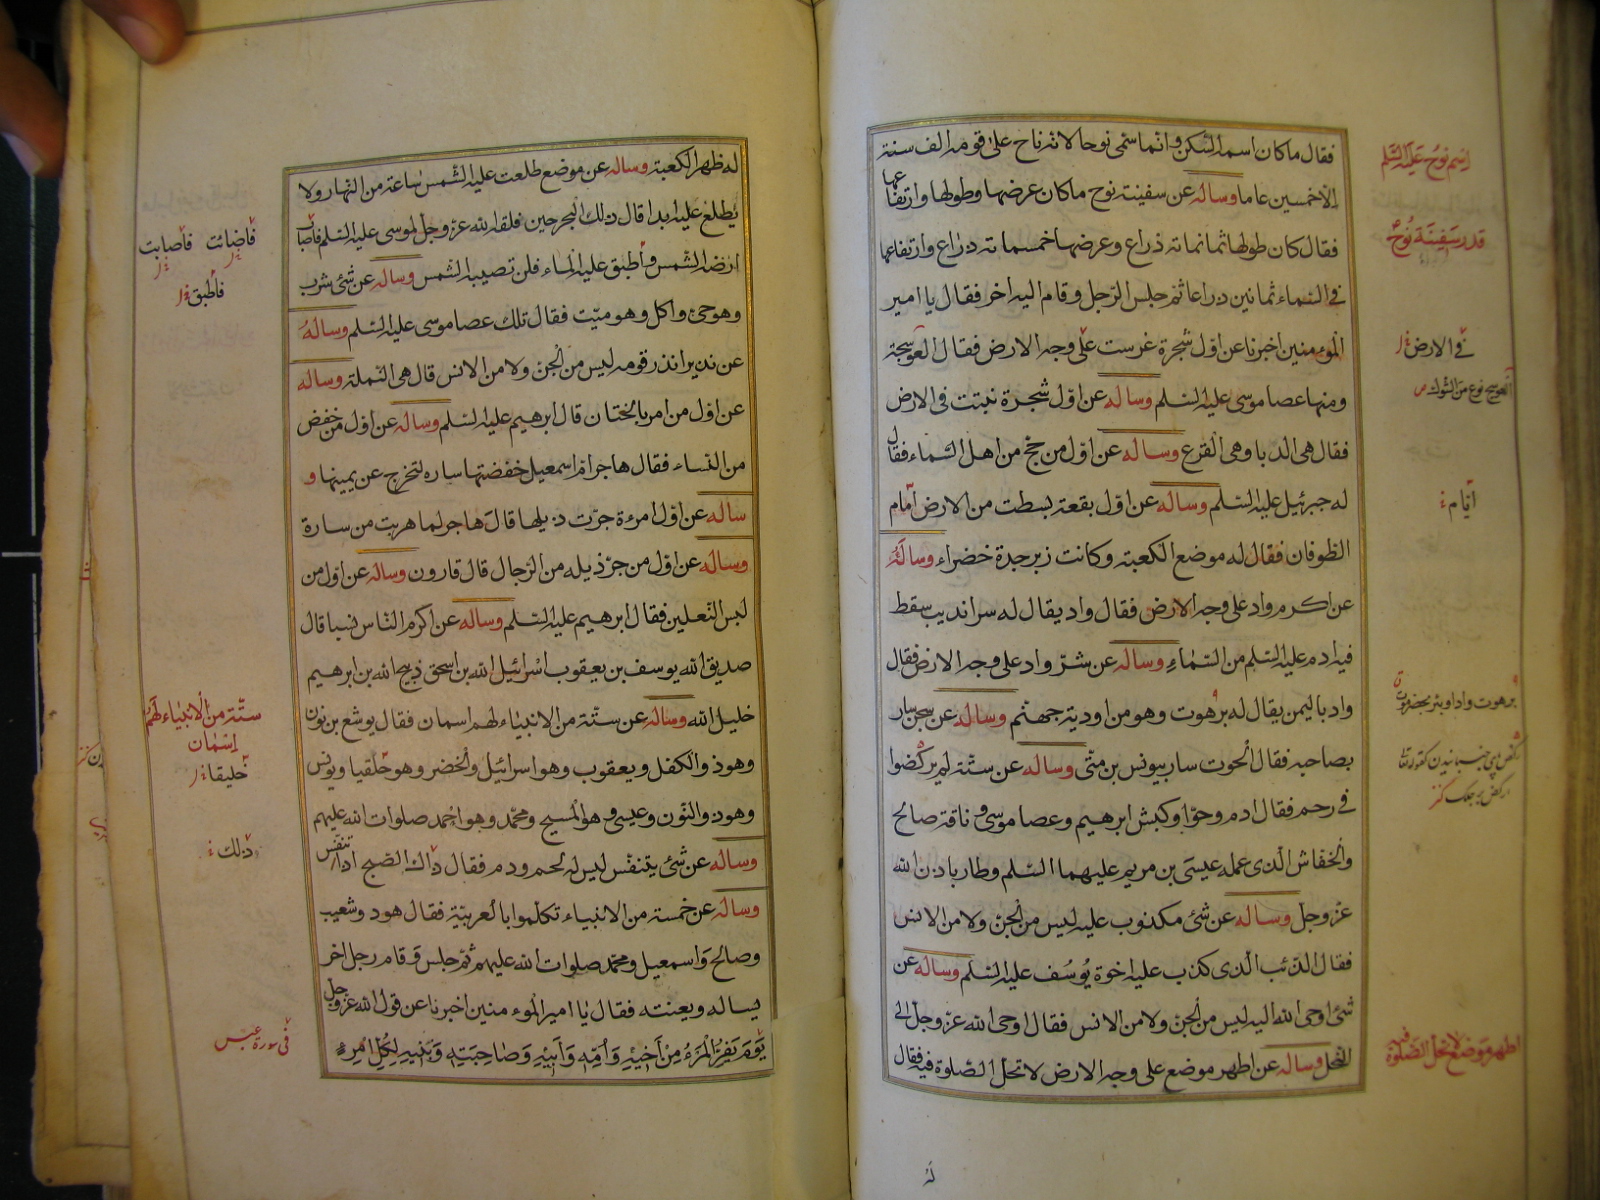 فقال ما كان اسمه السكن وانما سمى نوحا لانه ناح على قومه الف سنة
الا خمسين عاما وساله عن سفينة نوح ما كان عرضها وطولها وارتفاعها
فقال كان طولها ثمانمائة ذراع وعرضها خمسمائة ذراع وارتفاعها
فى السماء ثمانين ذراعا ثم جلس الرجل وقام اليه اخر فقال يا امير
المؤمنين اخبرنا عن اول شجرة غرست على وجه الارض فقال العوسجة
ومنها عصا موسى عليه السلم وساله عن اول شجرة نبتت فى الارض
فقال هى الدبا وهى القرع وساله عن اول من حج من اهل السماء فقال
له جبرئيل عليه السلم وساله عن اول بقعة بسطت من الارض امام
الطوفان فقال له موضع الكعبة وكانت زبرجدة خضراء وساله
عن اكرم واد على وجه الارض فقال واد يقال له سرانديب سقط
فيه ادم عليه السلم من السماء وساله عن شر واد على وجه الارض فقال
واد باليمن يقال له برهوت وهو من اودية جهنم وساله عن سجن سار
بصاحبه فقال الحوت سار بيونس بن متى وساله عن ستة لم يركضوا
فى رحم فقال ادم وحوا وكبش ابرهيم وعصا موسى وناقة صالح
والخفاش الذى عمله عيسى بن مريم عليهما السلم وطار باذن الله
عز وجل وساله عن شئ مكذوب عليه ليس من الجن ولا من الانس
فقال الذئب الذى كذب عليه اخوة يوسف عليه السلم وساله عن
شئ اوحى الله اليه ليس من الجن ولا من الانس فقال اوحى الله عز وجل الى
النحل وساله عن اطهر موضع على وجه الارض لا تحل الصلوة فيه فقال
اسم نوح عليه السلم
قدر سفينة نوح
فى الارض
العوسج نوع من الشوك
ايام
برهوت واد او بئر بحضرموت
اطهر موضع لا تحل الصلوة فيه
له ظهر الكعبة وساله عن موضع طلعت عليه الشمس ساعة من النهار ولا
يطلع عليه ابدا قال ذلك البحر حين فلقه الله عز وجل لموسى عليه السلم فاصاب
ارضه الشمس واطبق عليه الماء فلن تصيبه الشمس وساله عن شئ شرب
وهو حى واكل وهو ميت فقال تلك عصا موسى عليه السلم وساله
عن نذير انذر قومه ليس من الجن ولا من الانس قال هى النملة وساله
عن اول من امر بالختان قال ابرهيم عليه السلم وساله عن اول من خفض
من النساء فقال هاجر ام اسمعيل خفضتها ساره لتخرج عن يمينها و
ساله عن اول امرءة جرت ذيلها قال هاجر لما هربت من سارة
وساله عن اول من جر ذيله من الرجال قال قارون وساله عن اول من
لبس النعلين فقال ابرهيم عليه السلم وساله عن اكرم الناس نسبا قال
صديق الله يوسف بن يعقوب اسرائيل الله بن اسحق ذبيح الله بن ابرهيم
خليل الله وساله عن ستة من الانبياء لهم اسمان فقال يوشع بن نون
وهو ذو الكفل ويعقوب وهو اسرائيل والخضر وهو حلقيا ويونس
وهو ذو النون وعيسى وهو المسيح ومحمد وهو احمد صلوات الله عليهم
وساله عن شئ يتنفس ليس له لحم ودم فقال ذاك الصبح اذا تنفس
وساله عن خمسة من الانبياء تكلموا بالعربية فقال هود وشعيب
وصالح واسمعيل ومحمد صلوات الله عليهم ثم جلس وقام رجل اخر
يساله ويعنته فقال يا امير المؤمنين اخبرنا عن قول الله عز وجل
يوم يفر المرء من اخيه وامه وابيه وصاحبته وبنيه لكل امرئ
فاضائت فاصابت
فاطبق
ستة من الانبياء لهم
اسمان
خليقا
ذلك
فى سورة عبس